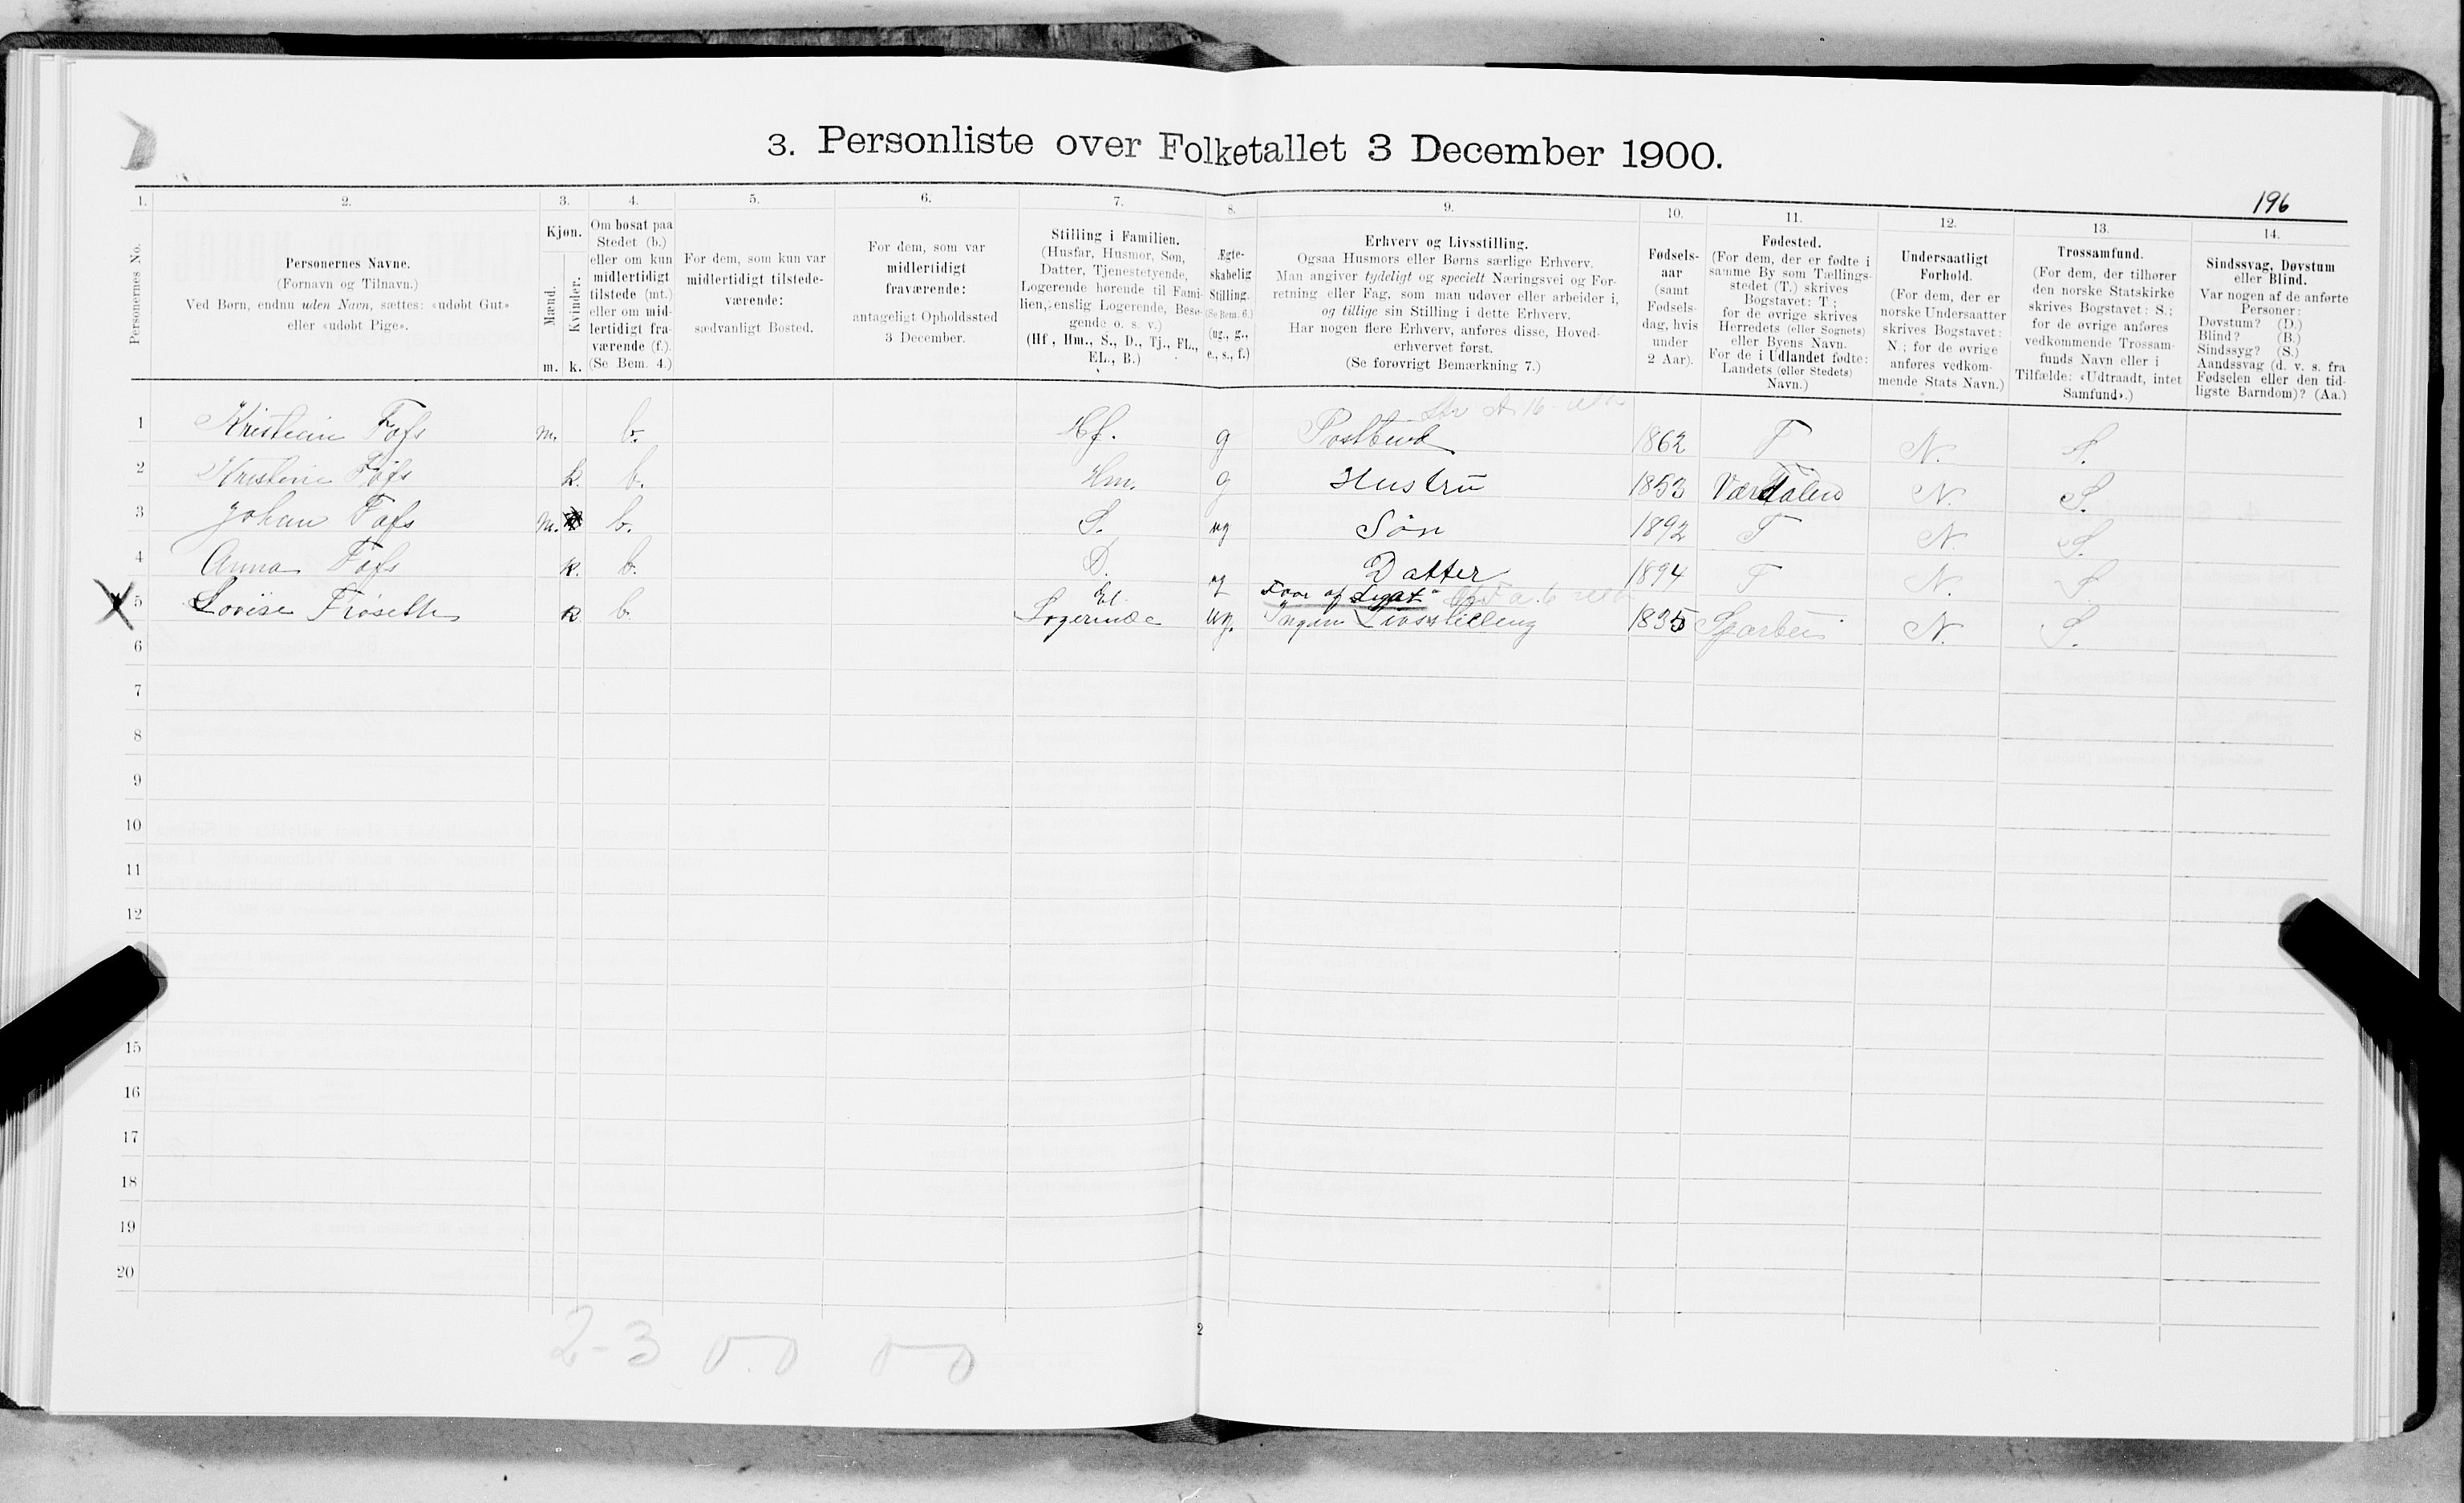 3. Personliste over Folketallet 3 December 1900.
196
1. 2. 3. 4. 5. 6. 7. 8. 9. 10. 11. 12. 13. 14.
Personernes No.
Personernes Navne.
(Fornavn og Tilnavn.)
Ved Børn, endnu uden Navn, sættes: «udøbt Gut»
eller «udøbt Pige».
Kjøn.
Mænd.
Kvinder.
m. k.
Om bosat paa
Stedet (b.)
eller om kun
midlertidigt
tilstede (mt.)
eller om mid-
lertidigt fra-
værende (f.)
(Se Bem. 4.)
For dem, som kun var
midlertidigt tilstede-
værende:
sædvanligt Bosted.
For dem, som var
midlertidigt
fraværende:
antageligt Opholdssted
3 December.
Stilling i Familien.
(Husfar, Husmor, Søn,
Datter, Tjenestetyende,
Logerende hørende til Fami-
lien, enslig Logerende, Besø-
gende o. s. v.)
(Hf., Hm., S., D., Tj., FL.,
EL., B.)
Ægte-
skabelig
Stilling.
(Se Bem. 6.)
(ug., g.,
e., s., f.)
Erhverv og Livsstilling.
Ogsaa Husmors eller Børns særlige Erhverv.
Man angiver tydeligt og specielt Næringsvei og For-
retning eller Fag, som man udøver eller arbeider i,
og tillige sin Stilling i dette Erhverv.
Har nogen flere Erhverv, anføres disse, Hoved-
erhvervet først.
(Se forøvrigt Bemærkning 7.)
Fødsels-
aar
(samt
Fødsels-
dag, hvis
under
2 Aar).
Fødested.
(For dem, der er fødte i
samme By som Tællings-
stedet (T.) skrives
Bogstavet: T;
for de øvrige skrives
Herredets (eller Sognets)
eller Byens Navn.
For de i Udlandet fødte:
Landets (eller Stedets)
Navn.)
Undersaatligt
Forhold.
(For dem, der er
norske Undersaatter
skrives Bogstavet:
N.; for de øvrige
anføres vedkom-
mende Stats Navn.)
Trossamfund.
(For dem, der tilhører
den norske Statskirke
skrives Bogstavet: S.;
for de øvrige anføres
vedkommende Trossam-
funds Navn eller i
Tilfælde: «Udtraadt, intet
Samfund».)
Sindssvag, Døvstum
eller Blind.
Var nogen af de anførte
Personer:
Døvstum? (D.)
Blind? (B.)
Sindssyg? (S.)
Aandssvag (d. v. s. fra
Fødselen eller den tid-
ligste Barndom)? (Aa.)
1 Kristian m. b. Hf. g Postbud 1862 T N. S.
2 Kristine k. b. Hm. g Hustru 1853 Værdalen N. S.
3 Johan m. b. S. ug Søn 1892 T N. S.
4 Anna k. b. D. Datter 1894 T N. S.
El. af Legat
5 Lovise Frøseth k b. Logerende ug. Ingen Livsstilling 1835 Sparbu N. S.
6
7
8
9
10
11
12
15
16
17
18
19
20
2-3 0.0 0-0
2